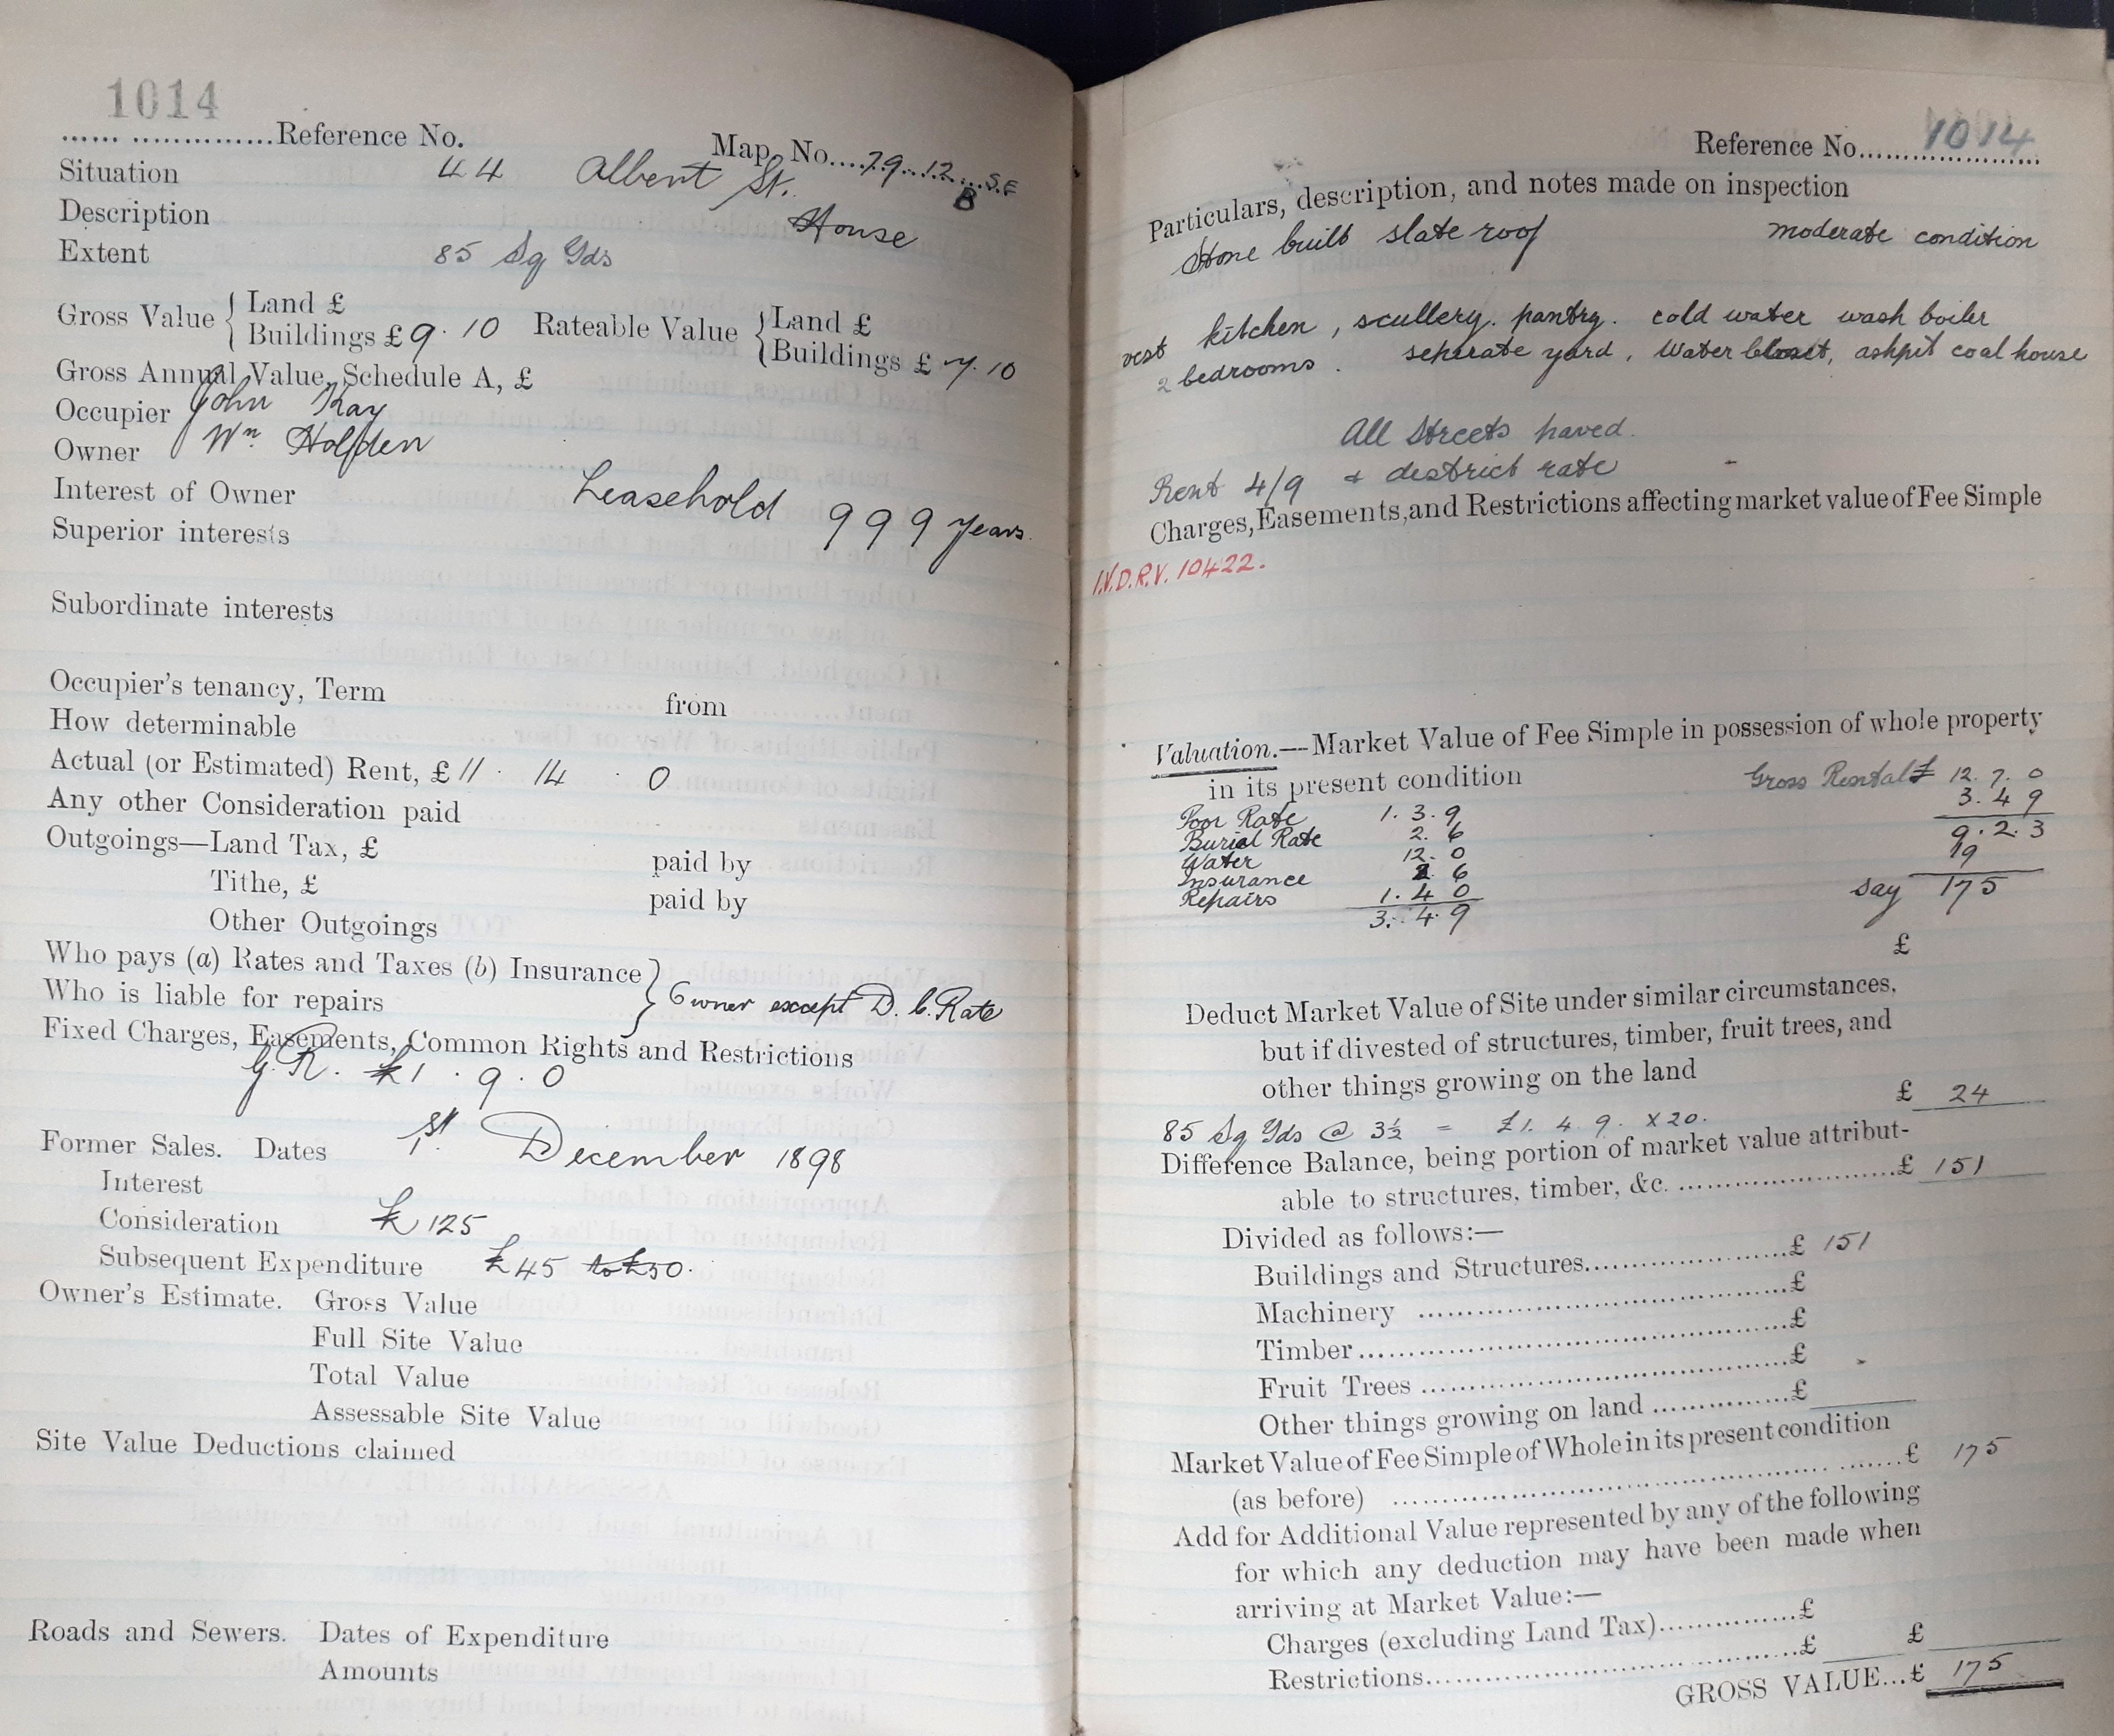 1014
...... ...............Reference No.
Map No....79..12...S.E
B
Situation 44 Albert St.
Description House
Extent 85 Sq Yds
Gross Value { Land £
Buildings £ 9. 10
Rateable Value { Land £
Buildings £ 7. 10
Gross Annual Value, Schedule A, £
Occupier John Kay
Owner Wm Holden
Interest of Owner Leasehold 999 years.
Superior interests
Subordinate interests
Occupier's tenancy, Term from
How determinable
Actual (or Estimated) Rent, £ 11 . 14 . 0
Any other Consideration paid
Outgoings—Land Tax, £ paid by
Tithe, £ paid by
Other Outgoings
Who pays (a) Rates and Taxes (b) Insurance }
Who is liable for repairs } Owner except D. C. Rate
Fixed Charges, Easements, Common Rights and Restrictions
G.R. £1 . 9 . 0
Former Sales. Dates 1st. December 1898
Interest
Consideration £125
Subsequent Expenditure £45 to £50.
Owner's Estimate. Gross Value
Full Site Value
Total Value
Assessable Site Value
Site Value Deductions claimed
Roads and Sewers. Dates of Expenditure
Amounts
Reference No. 1014
Particulars, description, and notes made on inspection
Stone built slate roof moderate condition
vest kitchen, scullery. pantry. cold water wash boiler
2 bedrooms. separate yard, Water Closet, ashpit coal house
All Streets paved.
Rent 4/9 + district rate
Charges, Easements, and Restrictions affecting market value of Fee Simple
I.V.D.R.V. 10422.
Valuation.—Market Value of Fee Simple in possession of whole property
in its present condition Gross Rental £ 12. 7. 0
Poor Rate 1. 3. 9 3. 4 9
Burial Rate 2. 6 9. 2. 3
Water 12. 0 19
Insurance 2 6
Repairs 1. 4 0 say 175
3. 4. 9
£
Deduct Market Value of Site under similar circumstances,
but if divested of structures, timber, fruit trees, and
other things growing on the land £ 24
85 Sq Yds @ 3½ = £1. 4 9. x 20.
Difference Balance, being portion of market value attribut-
able to structures, timber, &c. ..........................£ 151
Divided as follows:—
Buildings and Structures........................£ 151
Machinery ..........................................£
Timber................................................£
Fruit Trees ..........................................£
Other things growing on land ................£
Market Value of Fee Simple of Whole in its present condition
(as before) ..........................................................£ 175
Add for Additional Value represented by any of the following
for which any deduction may have been made when
arriving at Market Value:—
Charges (excluding Land Tax)...............£
Restrictions..........................................£ £
GROSS VALUE...£ 175